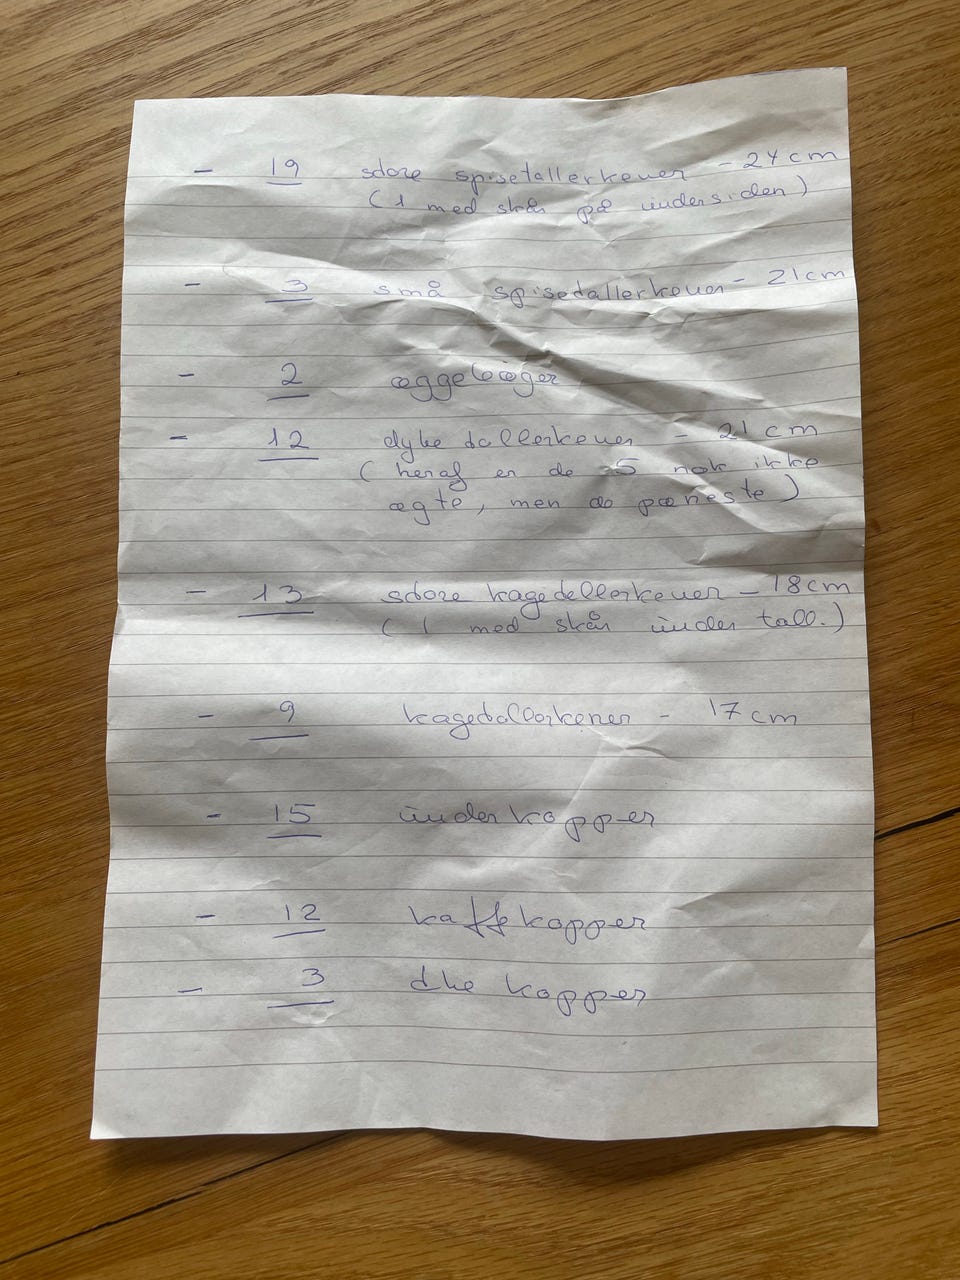 - 19 store spisetallerkener - 24 cm
( 1 med skår på undersiden )
- 3 små spisetallerkener - 21 cm
- 2 æggebæger
- 12 dybe tallerkener - 21 cm
( heraf er de 5 nok ikke
ægte, men de pæneste )
- 13 store kagetellerkener - 18 cm
( 1 med skår under tall. )
- 9 kagetallerkener - 17 cm
- 15 underkopper
- 12 kaffekopper
- 3 the kopper